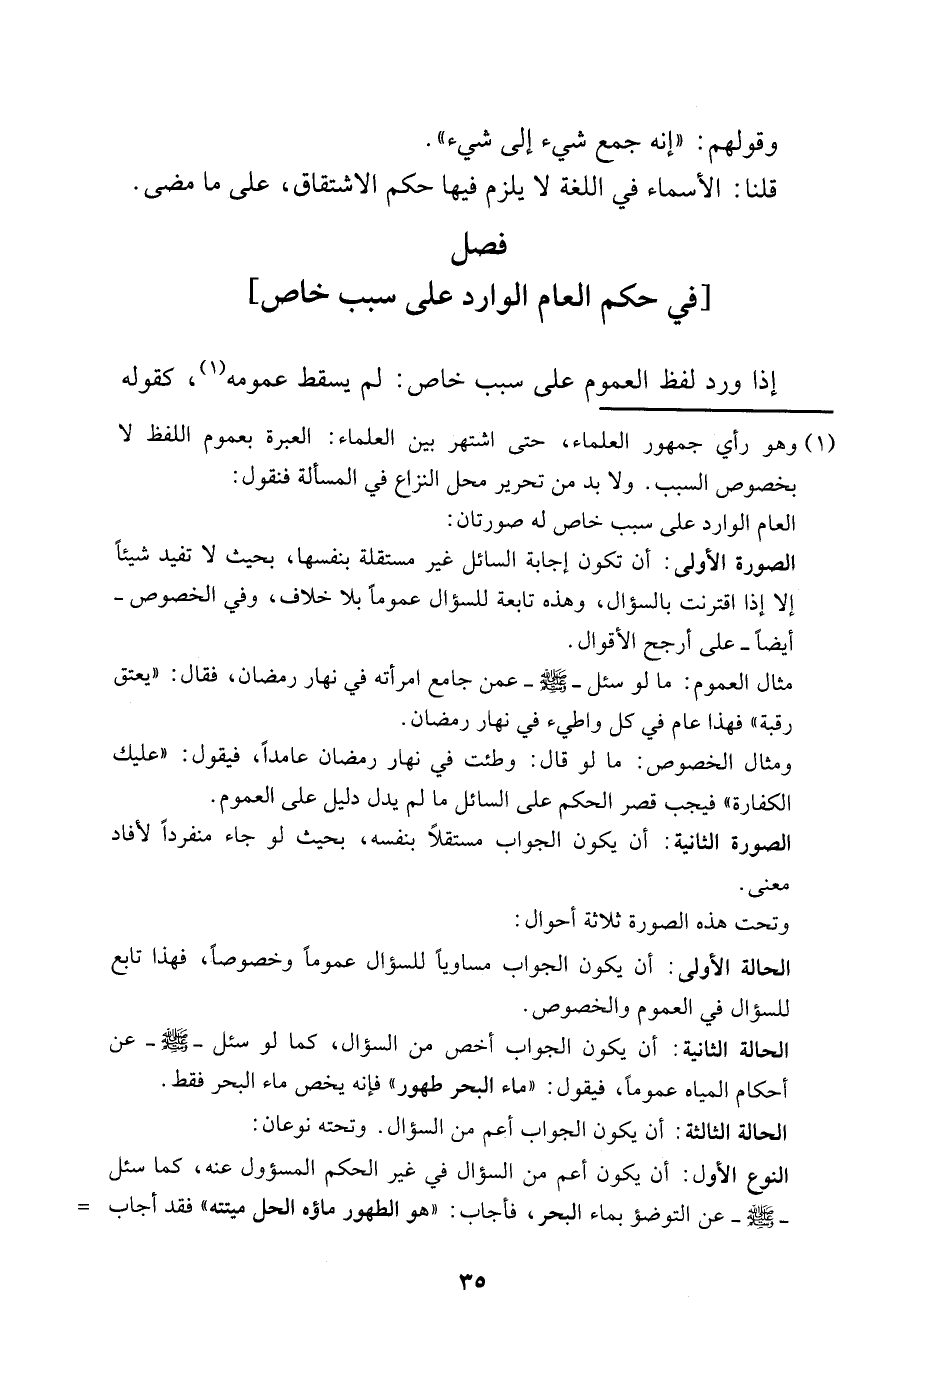 وقولهم: «إنه جمع شيء إلى شيء».
قلنا: الأسماء في اللغة لا يلزم فيها حكم الاشتقاق، على ما مضى.
فصل
[في حكم العام الوارد على سبب خاص]
إذا ورد لفظ العموم على سبب خاص: لم يسقط عمومه(١)، كقوله
(١) وهو رأي جمهور العلماء، حتى اشتهر بين العلماء: العبرة بعموم اللفظ لا
بخصوص السبب. ولا بد من تحرير محل النزاع في المسألة فنقول:
العام الوارد على سبب خاص له صورتان:
الصورة الأولى: أن تكون إجابة السائل غير مستقلة بنفسها، بحيث لا تفيد شيئاً
إلا إذا اقترنت بالسؤال، وهذه تابعة للسؤال عموماً بلا خلاف، وفي الخصوص ـ
أيضاً ـ على أرجح الأقوال.
مثال العموم: ما لو سئل ـ ﷺ ـ عمن جامع امرأته في نهار رمضان، فقال: «يعتق
رقبة» فهذا عام في كل واطيء في نهار رمضان.
ومثال الخصوص: ما لو قال: وطئت في نهار رمضان عامداً، فيقول: «عليك
الكفارة» فيجب قصر الحكم على السائل ما لم يدل دليل على العموم.
الصورة الثانية: أن يكون الجواب مستقلاً بنفسه، بحيث لو جاء منفرداً لأفاد
معنى.
وتحت هذه الصورة ثلاثة أحوال:
الحالة الأولى: أن يكون الجواب مساوياً للسؤال عموماً وخصوصاً، فهذا تابع
للسؤال في العموم والخصوص.
الحالة الثانية: أن يكون الجواب أخص من السؤال، كما لو سئل ـ ﷺ ـ عن
أحكام المياه عموماً، فيقول: «ماء البحر طهور» فإنه يخص ماء البحر فقط.
الحالة الثالثة: أن يكون الجواب أعم من السؤال. وتحته نوعان:
النوع الأول: أن يكون أعم من السؤال في غير الحكم المسؤول عنه، كما سئل
ـ ﷺ ـ عن التوضؤ بماء البحر، فأجاب: «هو الطهور ماؤه الحل ميتته» فقد أجاب =
٣٥